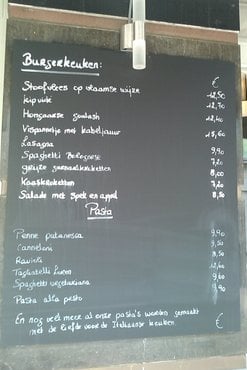 Burgerkeuken:
€
Stoofvlees op vlaamse wijze 12,50
kip 12,70
Hongaarse goulash 12,40
Vispannetje met kabeljauw 13,60
Lasagna 9,90
Spaghetti Bolognese 7,20
grijze garnaalkroketten 8,00
Kaaskroketten 7,20
Salade met spek en appel 8,50
Pasta
€
Penne putanesca 9,90
Canneloni 9,90
Ravioli 8,50
Tagliatelli 12,60
Spaghetti vegetariana 9,60
Pasta alla pesto 9,90
En nog veel meer al onze pasta's worden gemaakt
met de liefde voor de Italiaanse keuken.